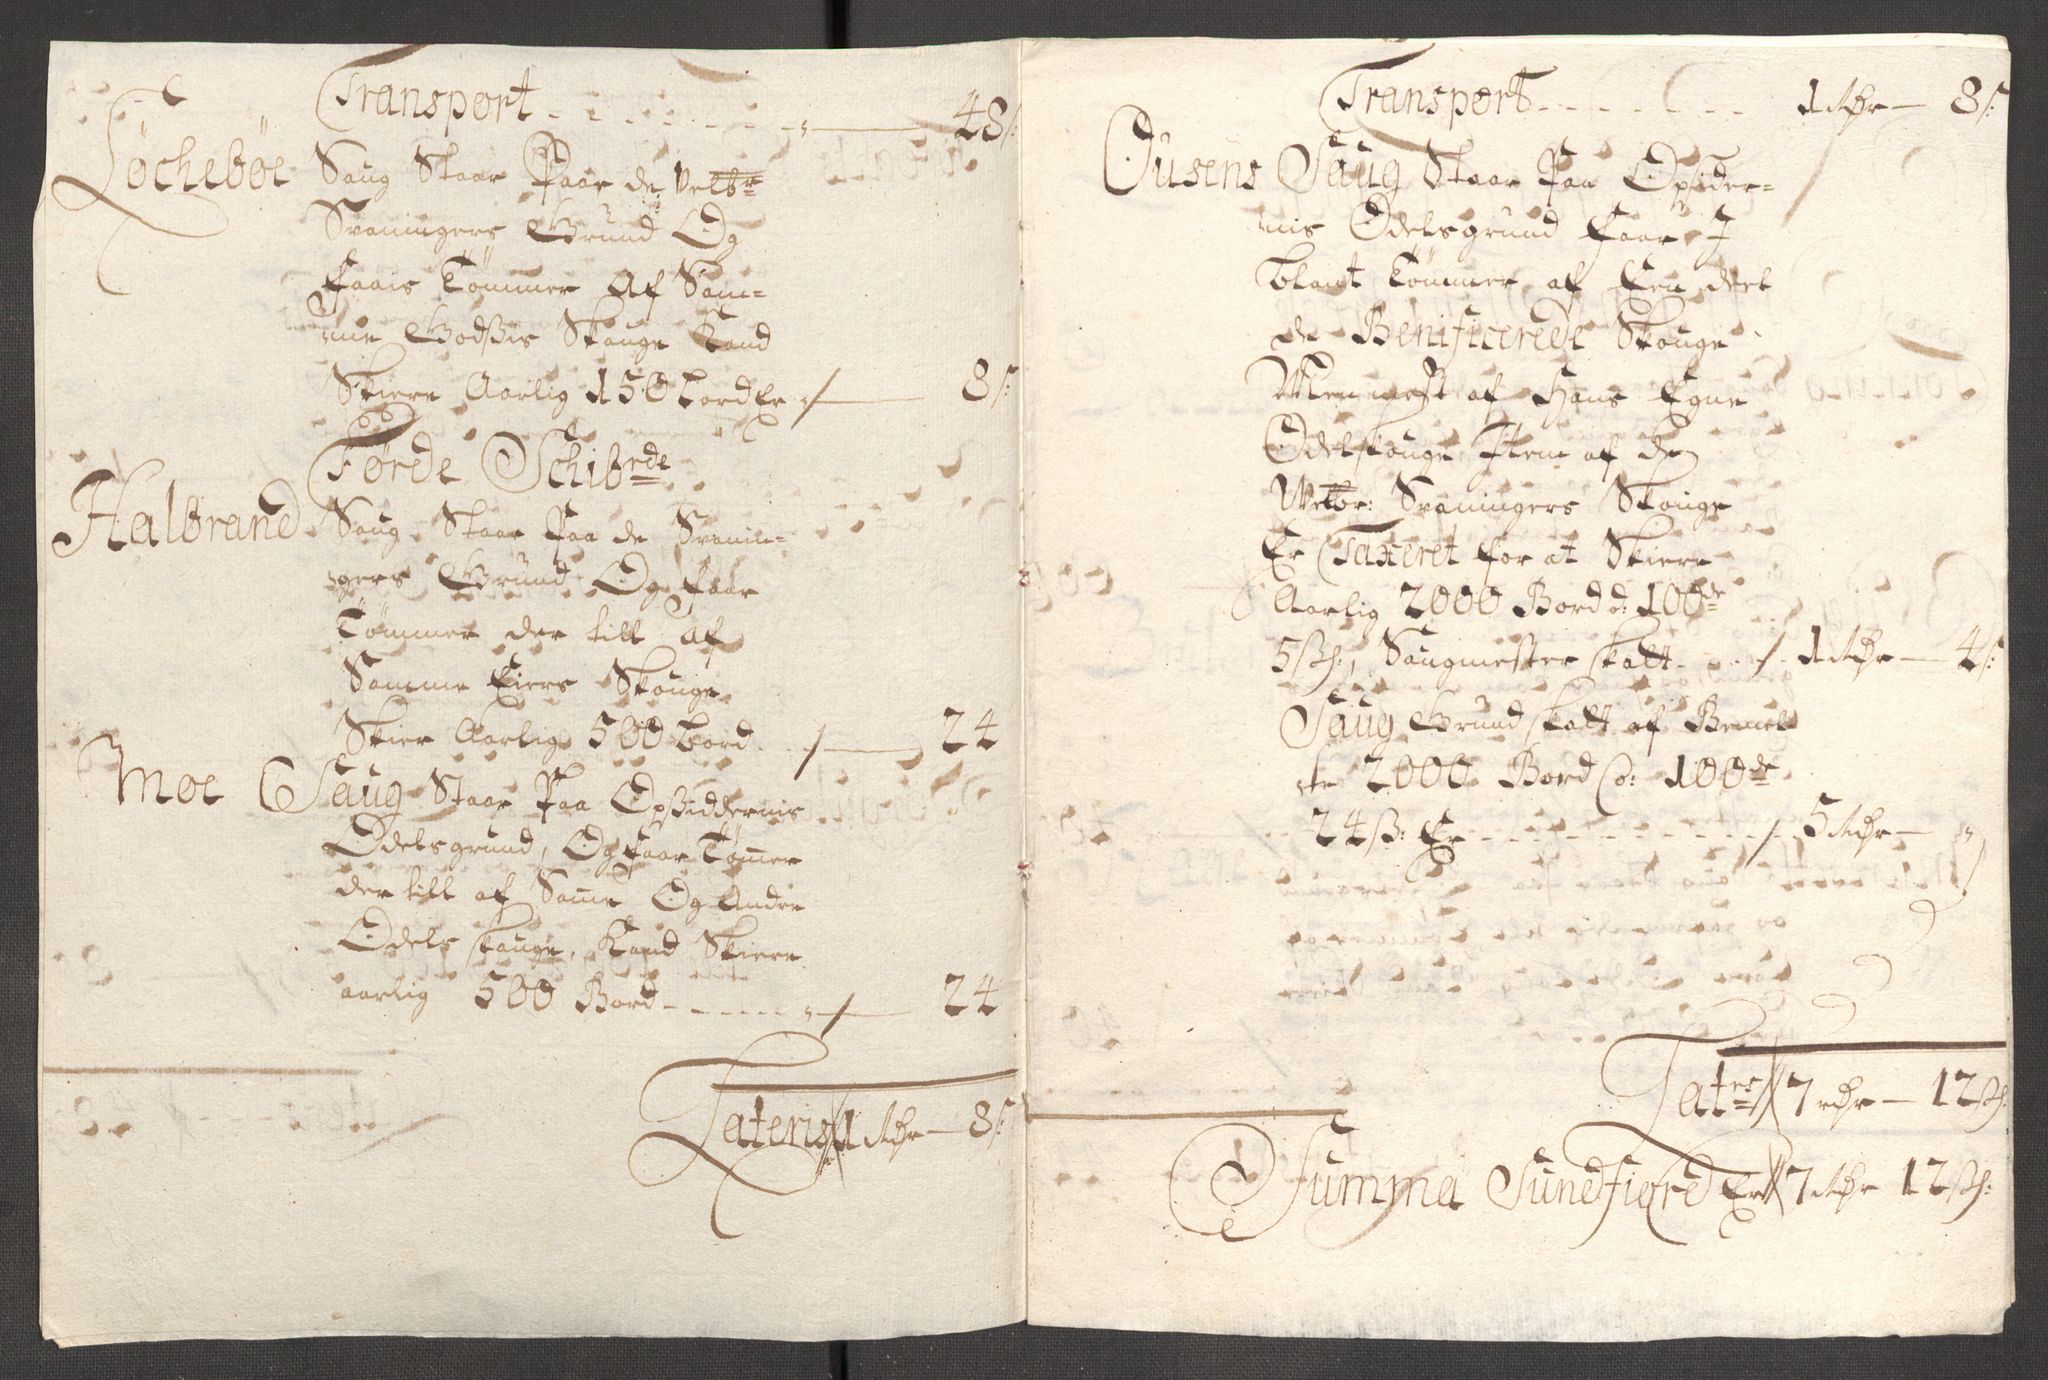 Transport - - - - - - - 48 s:
Löcheböe Saug Staar Paa de Velbr
Svaningers Grund Og
faais Tömmer Af Sam-
me Godtzis Skouge Kand
Skiere Aarlig 150 bord Er 8 s:
Førde Schibrde
Halbrand Saug Staar Paa de Svanin-
gers Grund Og faar
Tömmer der till af
Samme Eiers Skouge
Skier Aarlig 500 bord 24
Moe Saug Staar Paa Opsiddernis
Odelsgrund, Og faar Tömer
der till af Same Og Andre
Odels skouge, Kand Skiere
aarlig 500 Bord - - - - - 24
Lateris 1 Rdr - 8 s:
Transport - - - - - - - 1 Rdr - 8 s:
Ousens Saug Staar Paa Opsider-
nis Odelsgrund faar I
blant Tömmer af Een deel
de Benificerede Skouge
Men mest af Hans Egne
Odelskouge Item af de
Velbr: Svaningers Skouge
Er Taxeret for at Skiere
Aarlig 2000 Bord à 100de
5 sk:, Saugmester skatt - - 1 Rdr - 4 s:
Saug Grund skatt af Bemel
te 2000 Bord Co: 100de
24 sk: Er - - - - - - - 5 Rdr - "
Latrs 7 rdr - 12 sk:
Summa Sundfiord Er 7 Rdr 12 sk: